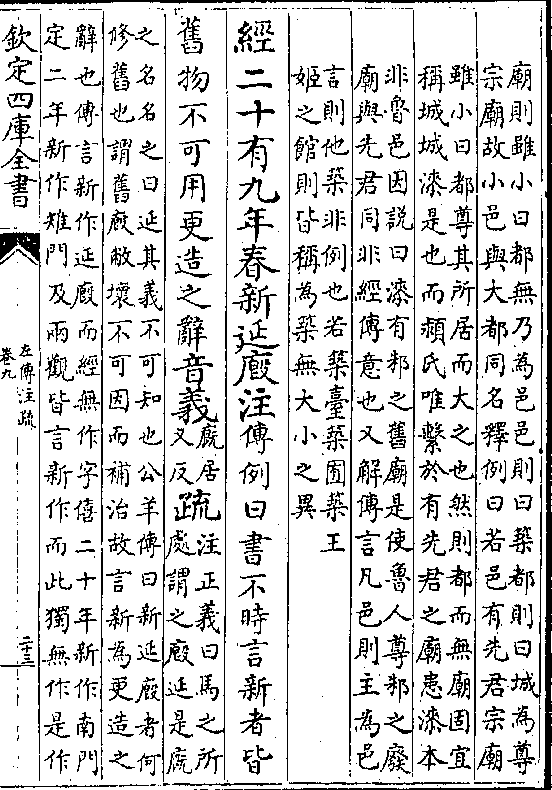 廟則雖小曰都無乃為邑邑則曰築都則曰城為尊
宗廟故小邑與大都同名釋例曰若邑有先君宗廟
雖小曰都尊其所居而大之也然則都而無廟固宜
稱城城漆是也而潁氏唯繫於有先君之廟患漆本
非魯邑因説曰漆有邾之舊廟是使魯人尊邾之廢
廟與先君同非經傳意也又解傳言凡邑則主為邑
言則他築非例也若築臺築囿築王
姬之館則皆稱為築無大小之異
經二十有九年春新延廏注傳例曰書不時言新者皆
舊物不可用更造之辭音義廐居又反疏注正義曰馬之所處謂之廏延是廐
之名名之曰延其義不可知也公羊傳曰新延廏者何
修舊也謂舊廏敝壞不可因而補治故言新為更造之
辭也傳言新作延廏而經無作字僖二十年新作南門
定二年新作雉門及兩觀皆言新作而此獨無作是作
欽定四庫全書
左傳注疏
卷九
二十三